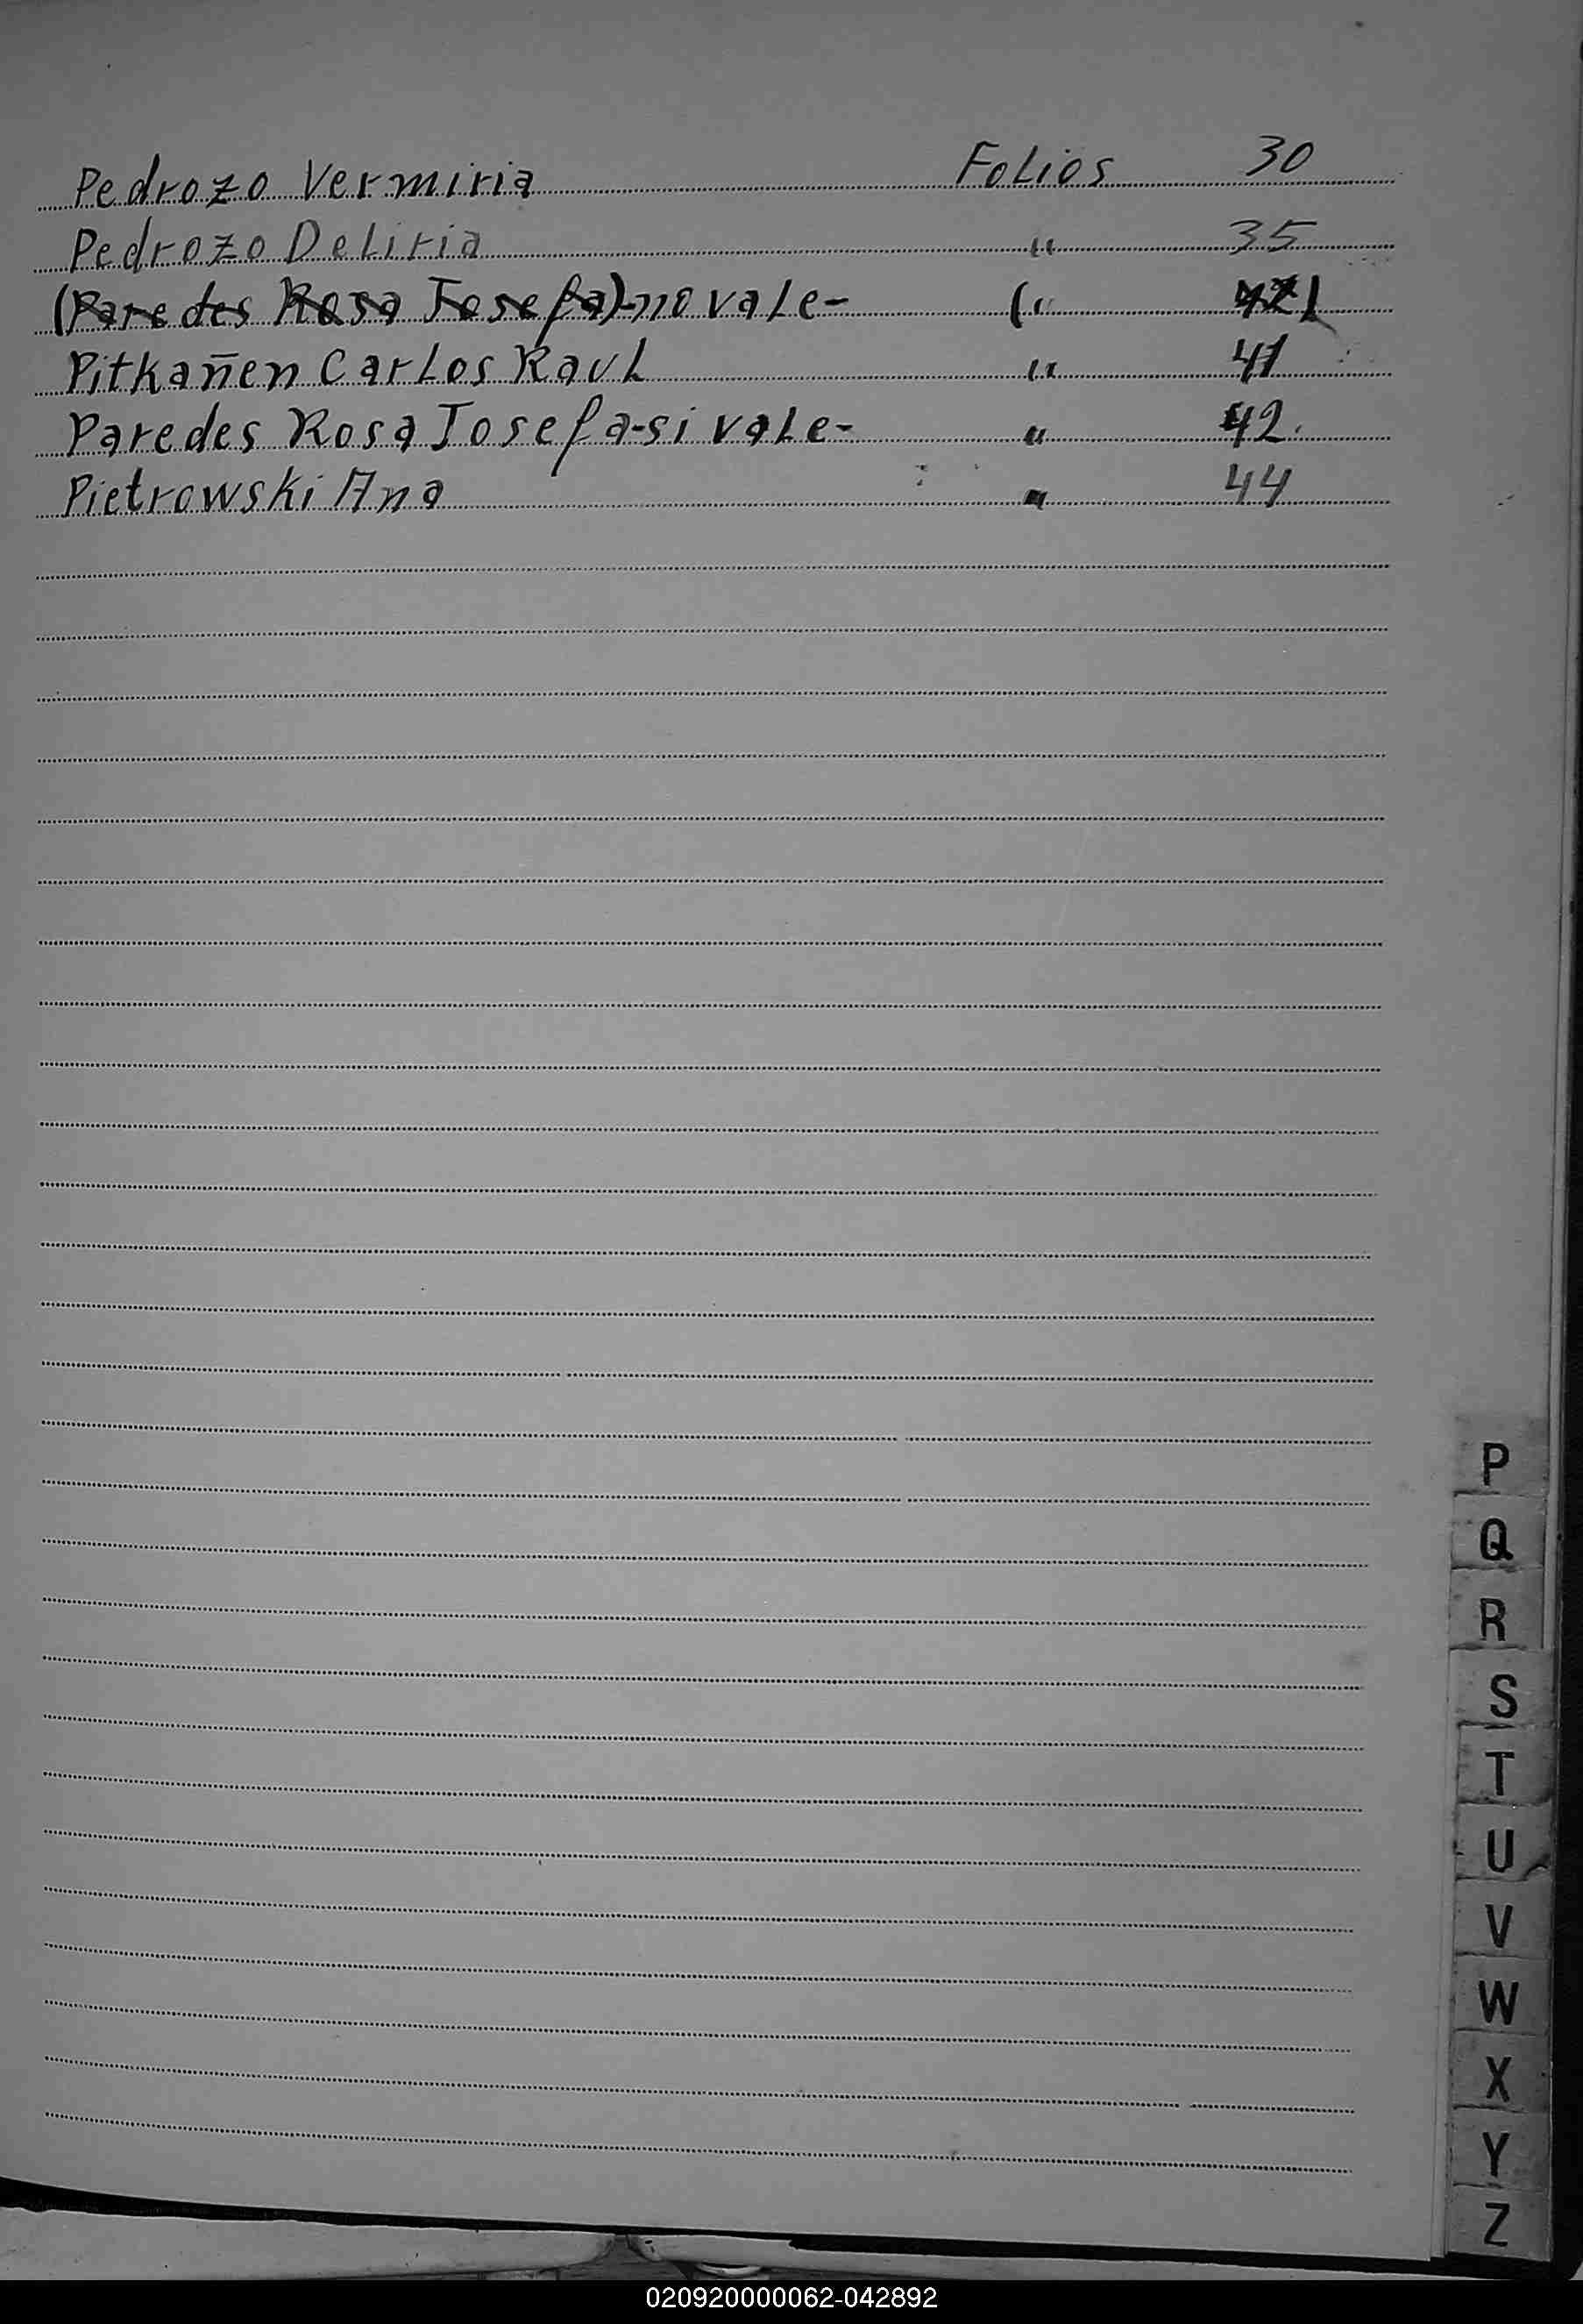 Pedrozo Vermiria Folios 30
Pedrozo Deliria " 35
(Paredes Rosa Josefa)-no vale- ("
Pitkañen Carlos Raul " 41
Paredes Rosa Josefa-si vale- " 42.
Pietrowski Ana " 44
P
Q
R
S
T
U
V
W
X
Y
Z
020920000062-042892